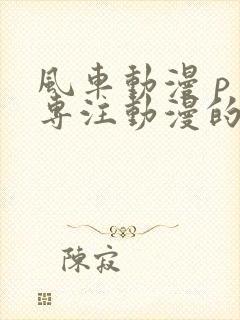 風車動漫 p
專注動漫的
陳寂